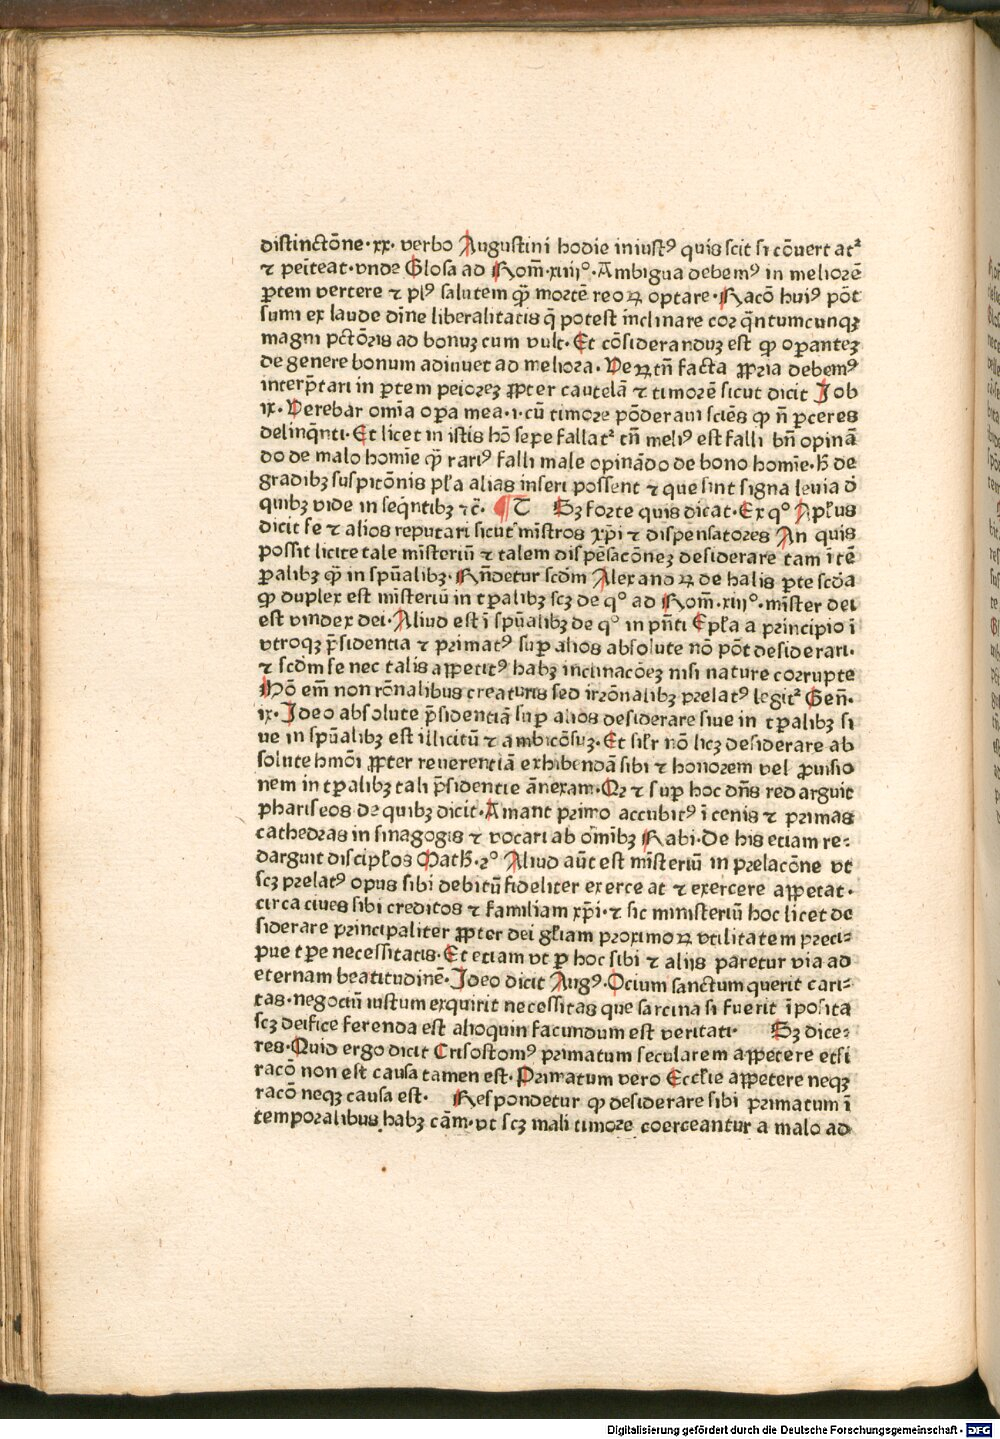 distinctōne·xx· verbo Augustini hodie iniustꝰ quis scit si cōuert at᷑
⁊ peīteat·vnde Glosa ad Rom̄·xiiijº·Ambigua debemꝰ in meliorē
ꝑtem vertere ⁊ plꝰ salutem qꝫ̄ mortē reoꝝ optare·Racō huiꝰ pōt
sumi ex laude diīne liberalitatis q̄ potest inclinare cor q̄ntumcunqꝫ
magni pctōris ad bonuꝫ cum vult·Et cōsideranduꝫ est ꝙ oꝑanteꝫ
de genere bonum adiuuet ad meliora·Veꝝtn̄ facta ꝓpria debemꝰ
interp̄tari in ꝑtem peioreꝫ ꝓpter cautelā ⁊ timorē sicut dicit Job
ix·Verebar om̄ia oꝑa mea·i·cū timore pōderaui sciēs ꝙ n̄ ꝑceres
delinq̄nti·Et licet in istis hō sepe fallat᷑ tn̄ meliꝰ est falli bn̄ opinā
do de malo homīe qꝫ̄ rariꝰ falli male opinādo de bono homīe·h̄ de
gradibꝫ suspitōnis pl̄a alias inseri possent ⁊ que sint signa leuia d̄
quibꝫ vide in seq̄ntibꝫ ⁊c̄· ¶ T Sꝫ forte quis dicat·Ex qº Apl̄us
dicit se ⁊ alios reputari sicut mīstros xp̄i ⁊ dispensatores An quis
possit licite tale mīsteriū ⁊ talem dispēsacōneꝫ desiderare tam ī tē
ꝑalibꝫ qꝫ̄ in spūalibꝫ·Rn̄detur scdm̄ Alexandꝝ de halis ꝑte scd̄a
ꝙ duplex est mīsteriū in tꝑalibꝫ scꝫ de qº ad Rom̄·xiijº·mīster dei
est vindex dei·Aliud est ī spūalibꝫ de qº in pn̄ti Epl̄a a principio ī
vtroqꝫ p̄sidentia ⁊ primatꝰ suꝑ alios absolute nō pōt desiderari·
⁊ scdm̄ se nec talis appetitꝰ habꝫ inclinacōeꝫ nisi nature corrupte
Hō em̄ non rōnalibus creaturis sed irrōnalibꝫ prelatꝰ legit᷑ Gen̄·
ix·Ideo absolute p̄sidentiā suꝑ alios desiderare siue in tꝑalibꝫ si
ue in spūalibꝫ est illicitū ⁊ ambicōsuꝫ·Et sil̄r nō licꝫ desiderare ab
solute hm̄oi ꝓpter reuerentiā exhibendā sibi ⁊ honorem vel ꝓuisio
nem in tꝑalibꝫ tali p̄sidentie ānexam·Qꝛ ⁊ suꝑ hoc dn̄s redarguit
phariseos de quibꝫ dicit·Amant primo accubitꝰ ī cenis ⁊ primas
cathedras in sinagogis ⁊ vocari ab om̄ibꝫ Rabi·De his etiam re-
darguit discipl̄os Math̄·2º Aliud aūt est mīsteriū in prelacōne vt
scꝫ prelatꝰ opus sibi debitū fideliter exerceat ⁊ exercere appetat·
circa ciues sibi creditos ⁊ familiam xp̄i·⁊ sic ministeriū hoc licet de
siderare principaliter ꝓpter dei gl̄iam proximoꝝ vtilitatem preci-
pue tꝑe necessitatis·Et etiam vt ꝑ hoc sibi ⁊ alijs paretur via ad
eternam beatitudinē·Ideo dicit Augꝰ·Ocium sanctum querit cari-
tas·negociū iustum exquirit necessitas que sarcina si fuerit īposita
scꝫ deifice ferenda est alioquin facundum est veritati· Sꝫ dice-
res·Quid ergo dicit Crisostomꝰ primatum secularem appetere etsi
racō non est causa tamen est·Primatum vero Eccl̄ie appetere neqꝫ
racō neqꝫ causa est· Respondetur ꝙ desiderare sibi primatum ī
temporalibus habꝫ cām·vt scꝫ mali timore coerceantur a malo ad
Digitalisierung gefördert durch die Deutsche Forschungsgemeinschaft - DFG